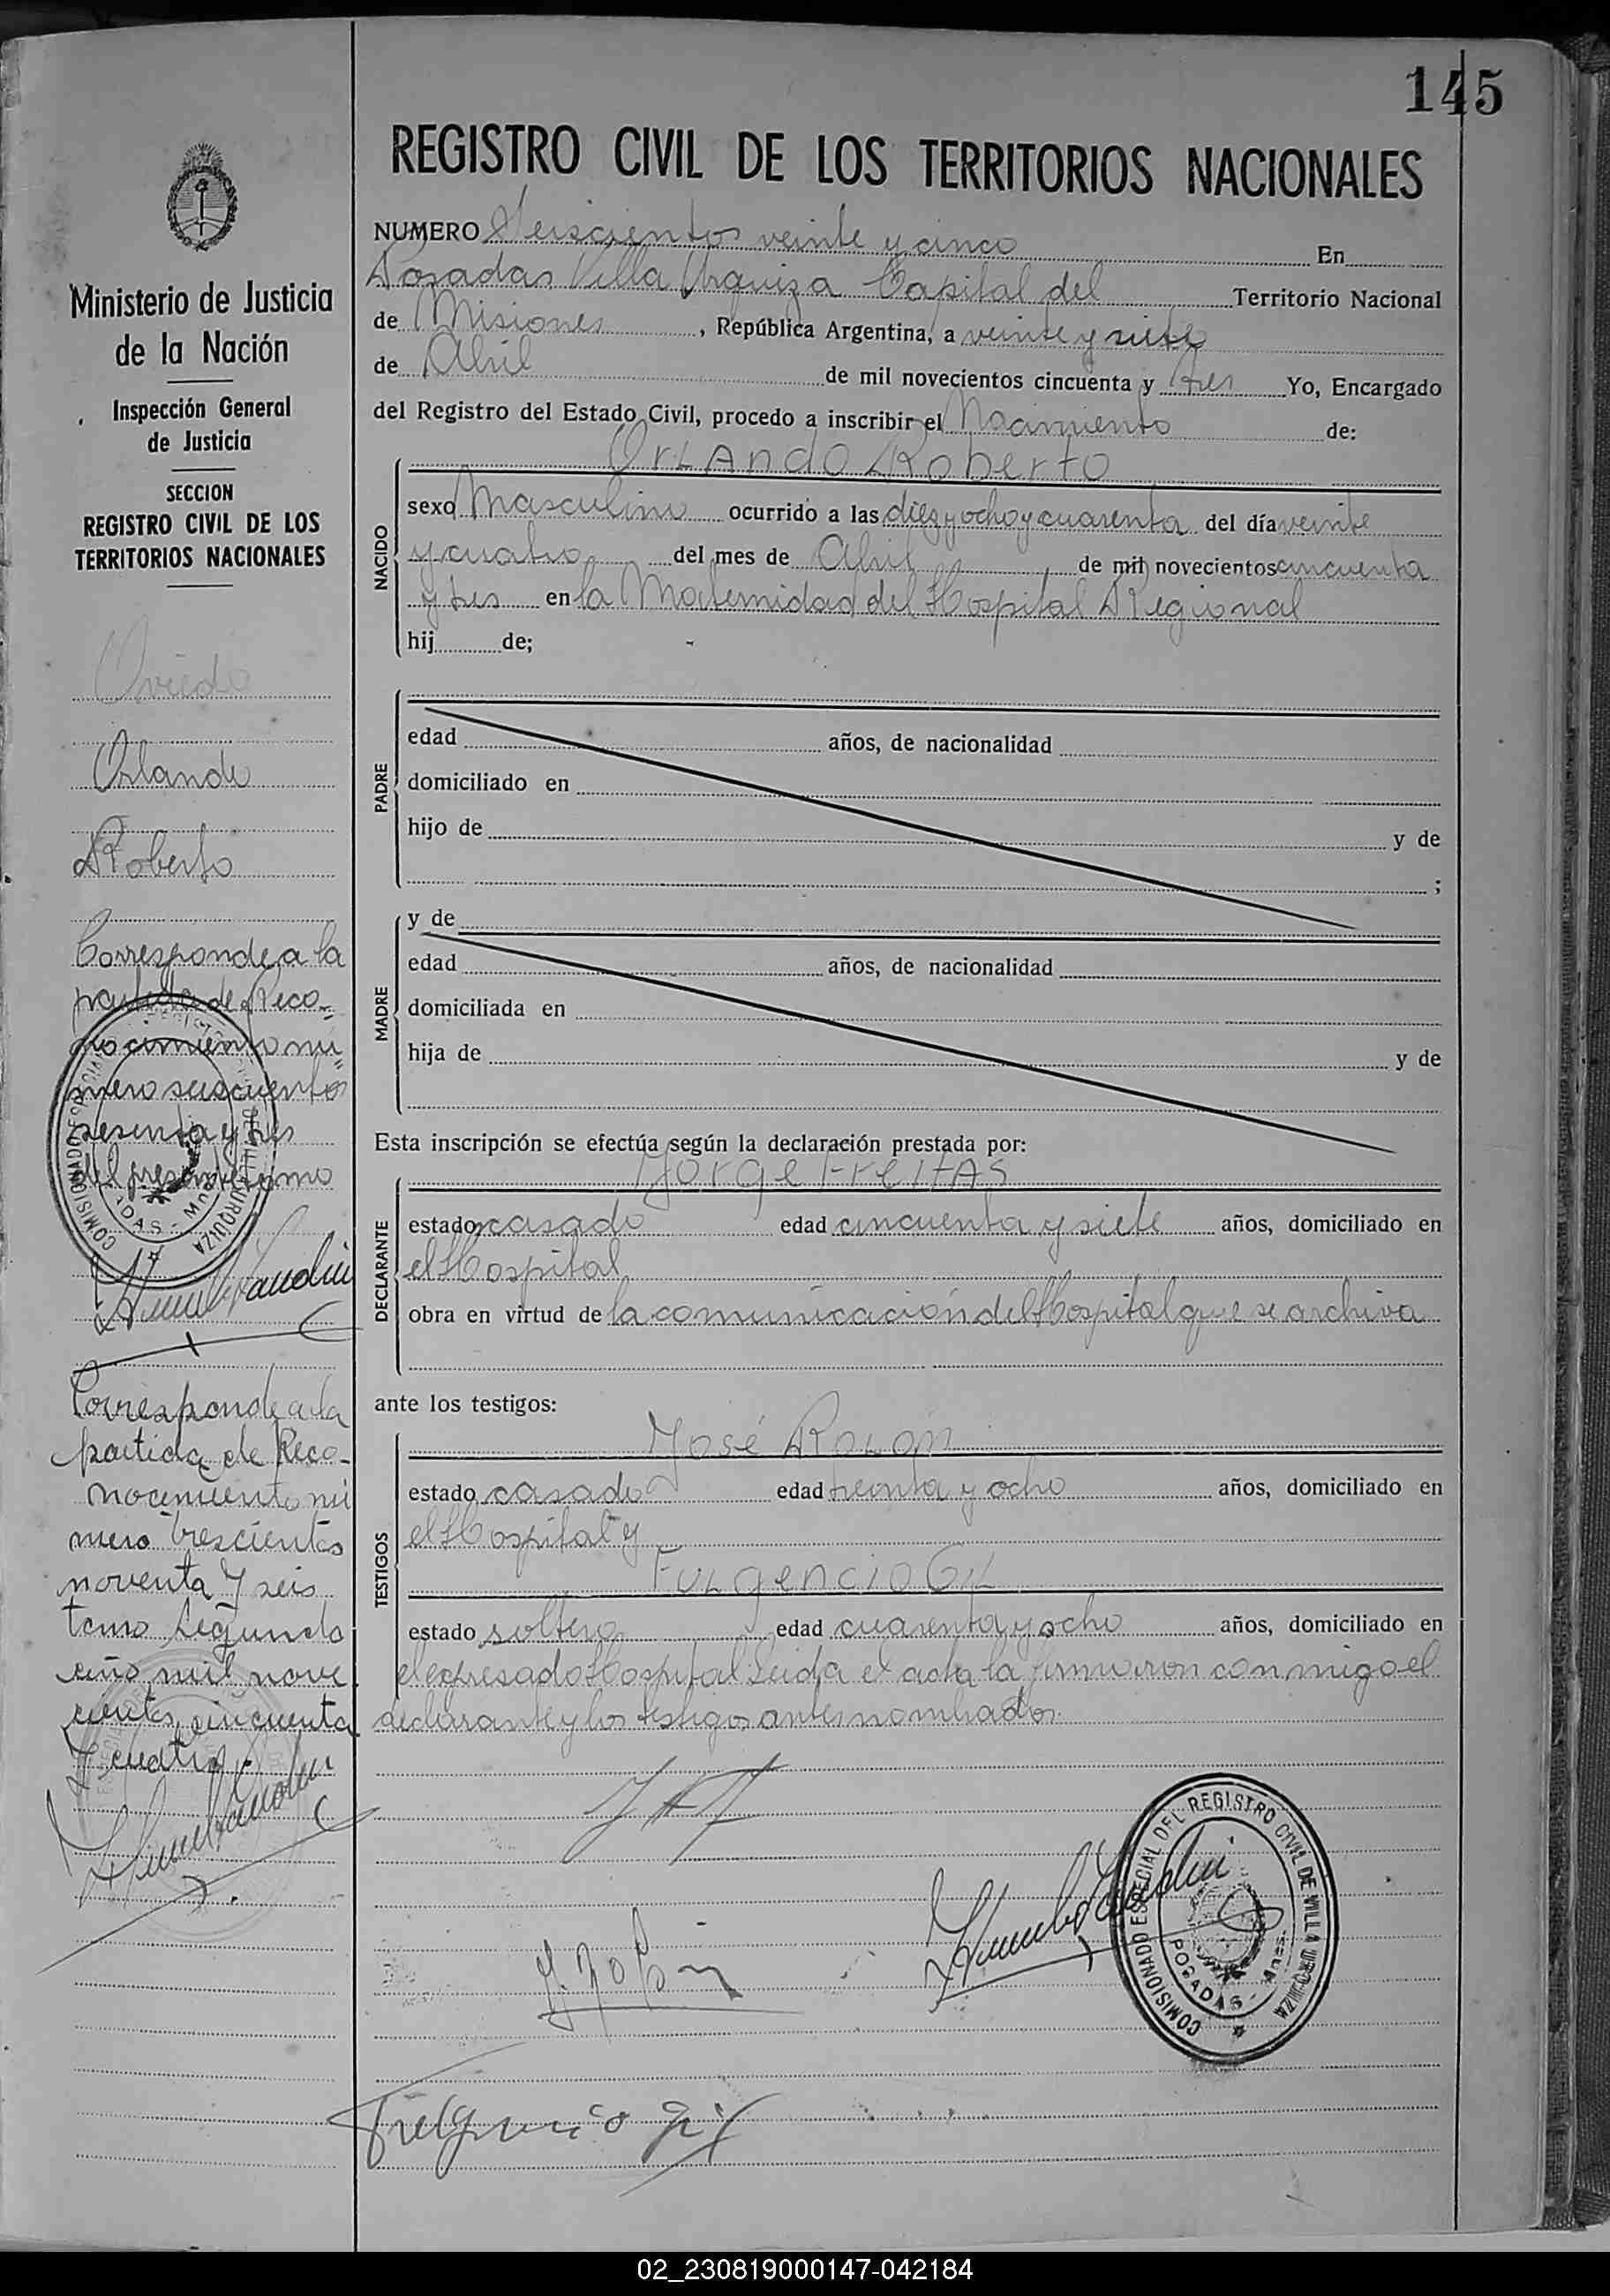 145
REGISTRO CIVIL DE LOS TERRITORIOS NACIONALES
NUMERO Seiscientos veinte y cinco En
Posadas Villa Urquiza Capital del Territorio Nacional
de Misiones, República Argentina, a veinte y siete
de Abril de mil novecientos cincuenta y tres Yo, Encargado
del Registro del Estado Civil, procedo a inscribir el Nacimiento de:
Orlando Roberto
NACIDO
sexo Masculino ocurrido a las diez y ocho y cuarenta del día veinte
y cuatro del mes de Abril de mil novecientos cincuenta
y tres en la Maternidad del Hospital Regional
hij de;
PADRE
edad años, de nacionalidad
domiciliado en
hijo de y de
;
MADRE
y de
edad años, de nacionalidad
domiciliada en
hija de y de
Esta inscripción se efectúa según la declaración prestada por:
Jorge Freitas
DECLARANTE
estado casado edad cincuenta y siete años, domiciliado en
el Hospital
obra en virtud de la comunicación del Hospital que se archiva
ante los testigos:
TESTIGOS
José Rolón
estado casado edad treinta y ocho años, domiciliado en
el Hospital y
Fulgencio Gil
estado soltero edad cuarenta y ocho años, domiciliado en
el expresado Hospital. Leida el acta la firmaron conmigo el
declarante y los testigos antes nombrados.
COMISIONADO ESPECIAL DEL REGISTRO CIVIL DE VILLA URQUIZA
POSADAS - Mnes.
Fulgencio Gil
Ministerio de Justicia
de la Nación
Inspección General
de Justicia
SECCION
REGISTRO CIVIL DE LOS
TERRITORIOS NACIONALES
Oviedo
Orlando
Roberto
Corresponde a la
partida de Reco-
nocimiento nu
mero seiscientos
sesenta y tres
del presente tomo
Corresponde a la
partida de Reco-
nocimiento nú
mero trescientos
noventa y seis
tomo segundo
año mil nove
cientos cincuenta
y cuatro.
02_230819000147-042184